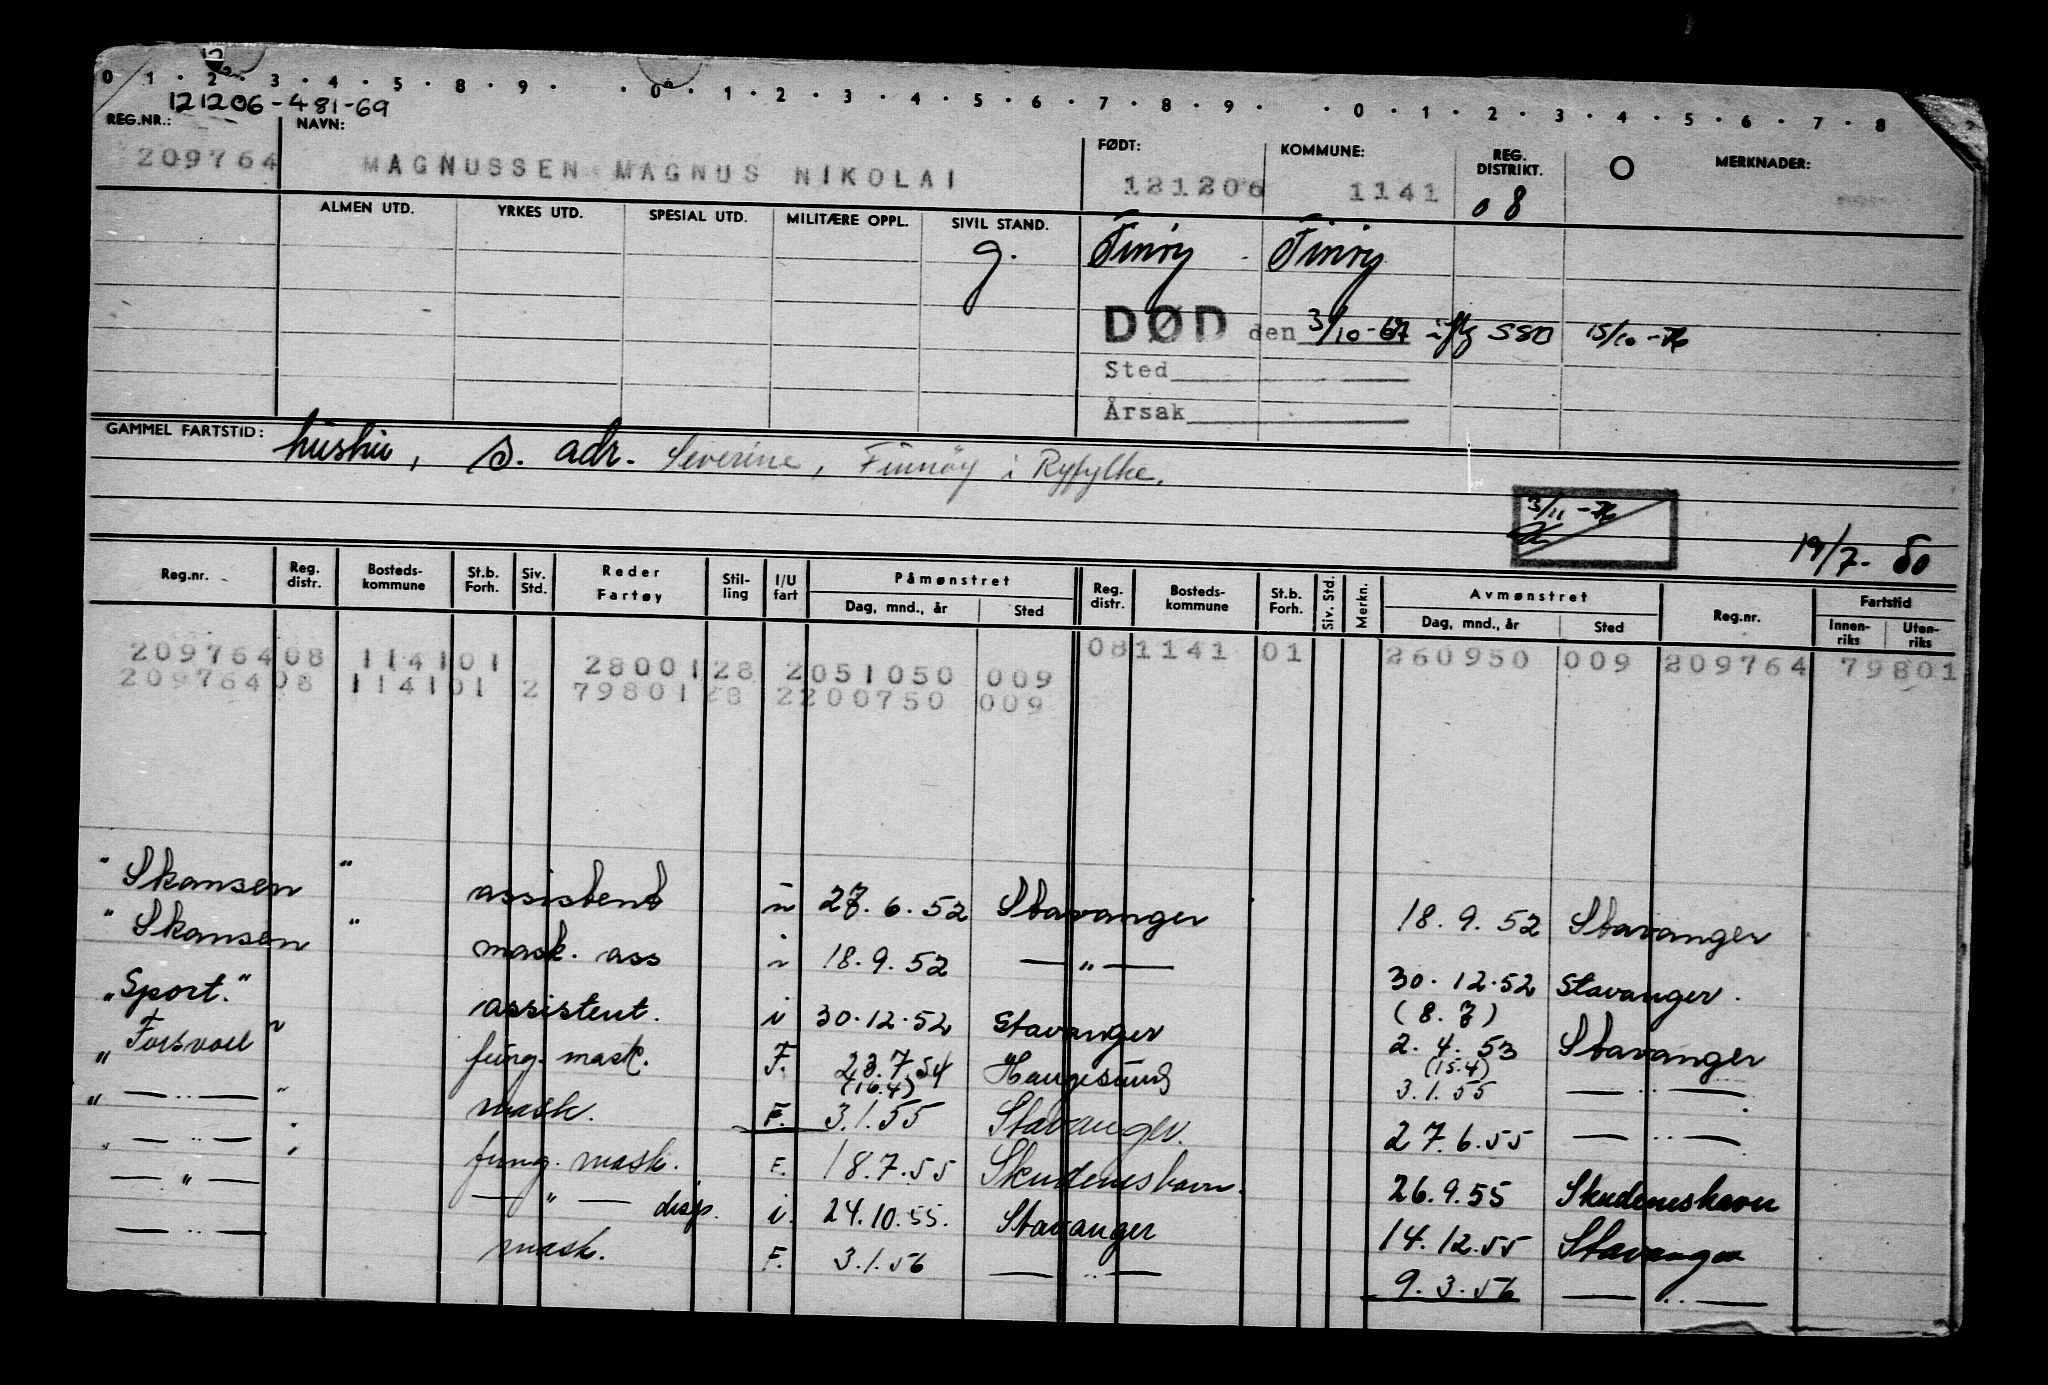 0 1 . 2 . 3 . 4 . 5 . 8 . 9 . . 0 . 1 . 2 . 3 . 4 . 5 . 6 . 7 . 8 . 9 . . 0 . 1 . 2 . 3 . 4 . 5 . 6 . 7 . 8
121206-481-69
REG.NR.: NAVN: FØDT: KOMMUNE: REG. DISTRIKT. O MERKNADER:
209764 MAGNUSSEN MAGNUS NIKOLAI 121206 1141 08
ALMEN UTD. YRKES UTD. SPESIAL UTD. MILITÆRE OPPL. SIVIL STAND.
g. Finnøy Finnøy
DØD den 3/10-67 iflg SSB 15/10-76
Sted
Årsak
GAMMEL FARTSTID: hustru, s. adr. Severine, Finnøy i Ryfylke.
3/11-76
19/7-50
Reg.nr. Reg. distr. Bosteds-kommune St.b. Forh. Siv. Std. Reder Fartøy Stil-ling I/U fart Påmønstret Dag, mnd., år Sted Reg. distr. Bosteds-kommune St.b. Forh. Siv. Std. Merkn. Avmønstret Dag, mnd., år Sted Reg.nr. Fartstid Innen-riks Uten-riks
20976408 114101 28001 28 2051050 009 081141 01 260950 009 209764 79801
20976408 114101 2 79801 28 2200750 009
" Skansen " assistent 27.6.52 Stavanger 18.9.52 Stavanger
" Skansen " mask. ass i 18.9.52 — " — 30.12.52 Stavanger.
(8.7)
"Sport." assistent. i 30.12.52 Stavanger 2.4.53 Stavanger
(15.4)
" Forsvoll " fung. mask. F. 23.7.54 Haugesund 3.1.55 — .. —
(16.4)
" — .. — " mask. F. 3.1.55 Stavanger. 27.6.55 — .. —
— .. — fung. mask. F. 18.7.55 Skudeneshavn. 26.9.55 Skudeneshavn
— " — — " — disp. i. 24.10.55. Stavanger 14.12.55 Stavanger
— .. — mask. F. 3.1.56 — .. — 9.3.56 — .. —